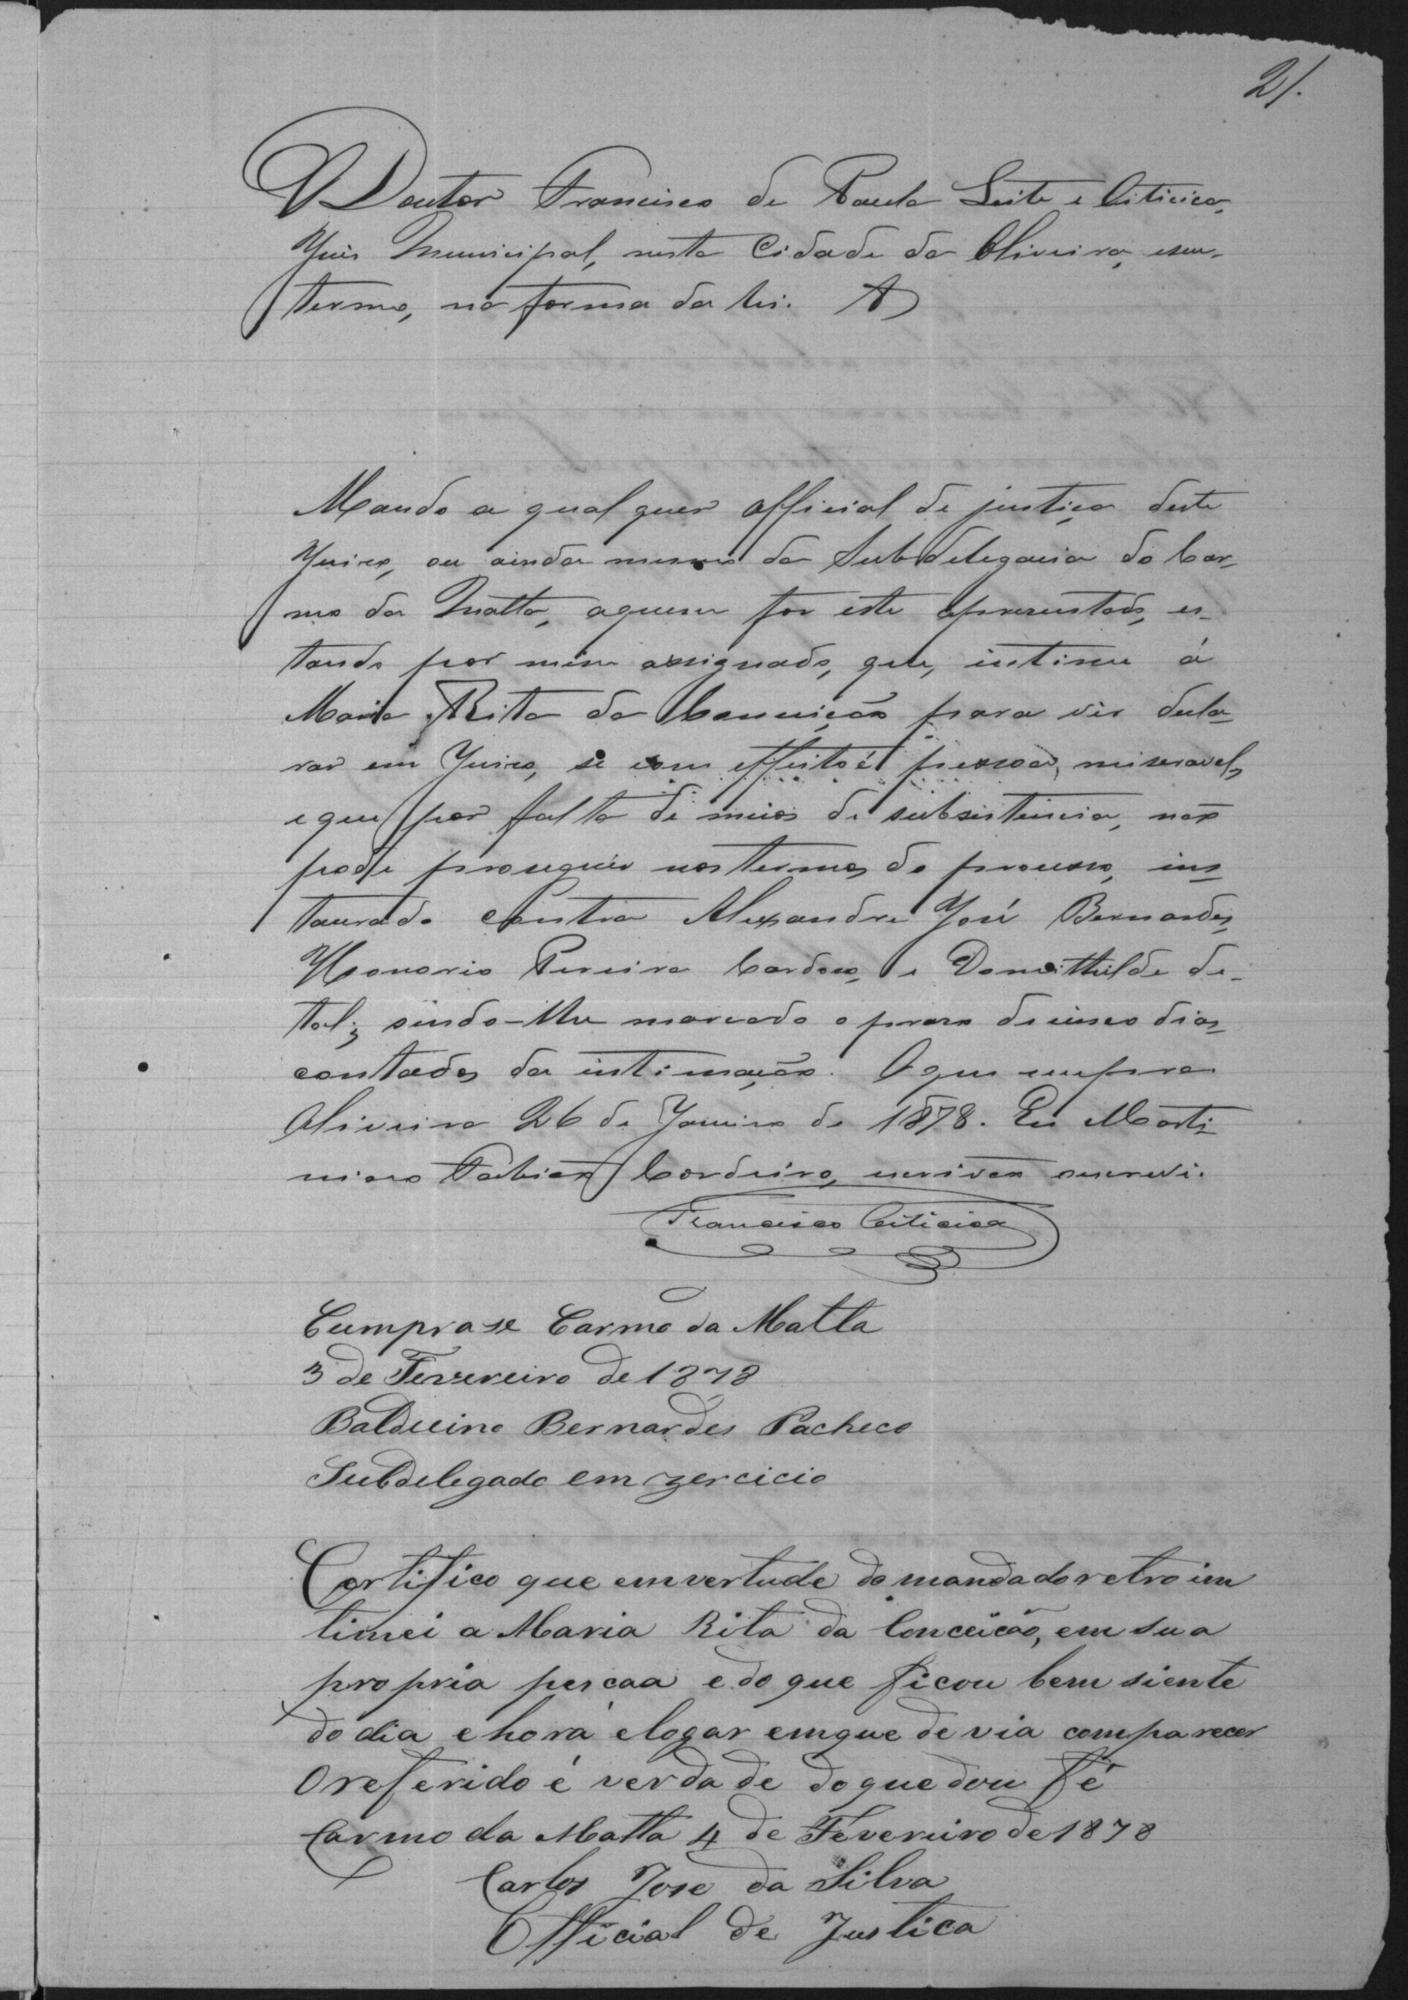 21.
O Doutor Francisco de Paula Leite e Oiticica,
Juis Municipal, nesta Cidade da Oliveira, e seu
termo, na forma da lei.
Mando a qualquer official de justiça deste
Juizo, ou ainda mesmo da Subdelegacia do Car-
mo da Matta, aquem for este apresentado, es-
tando por mim assignado, que, intime á
Maria Rita da Conceição para vir decla-
rar em Juizo, se com effeito é pessoa, miseravel,
e que por falta de meios de subsistencia, não
póde proseguir nos termos do processo, ins-
taurado contra Alexandre José Bernardes,
Honorio Pereira Cardoso, e Domithilde de
tal; sendo-lhe marcado o praso de cinco dias
contados da intimação. O que cumpra
Oliveira 26 de Janeiro de 1878. Eu Marti-
niano Fabian Cordeiro, escrivão escrevi.
Francisco Oiticica
Cumprase Carmo da Matta
3 de Fevereiro de 1878
Balduino Bernardes Pacheco
Subdelegado em zercicio
Certifico que emvertude do mandado retro in
timei a Maria Rita da Conceição, em sua
propria pescaa e do que ficou bem siente
do dia e hora e logar emque devia comparecer
O referido é verdade doque dou fé
Carmo da Matta 4 de Fevereiro de 1878
Carlos Jose da Silva
Official de Justica